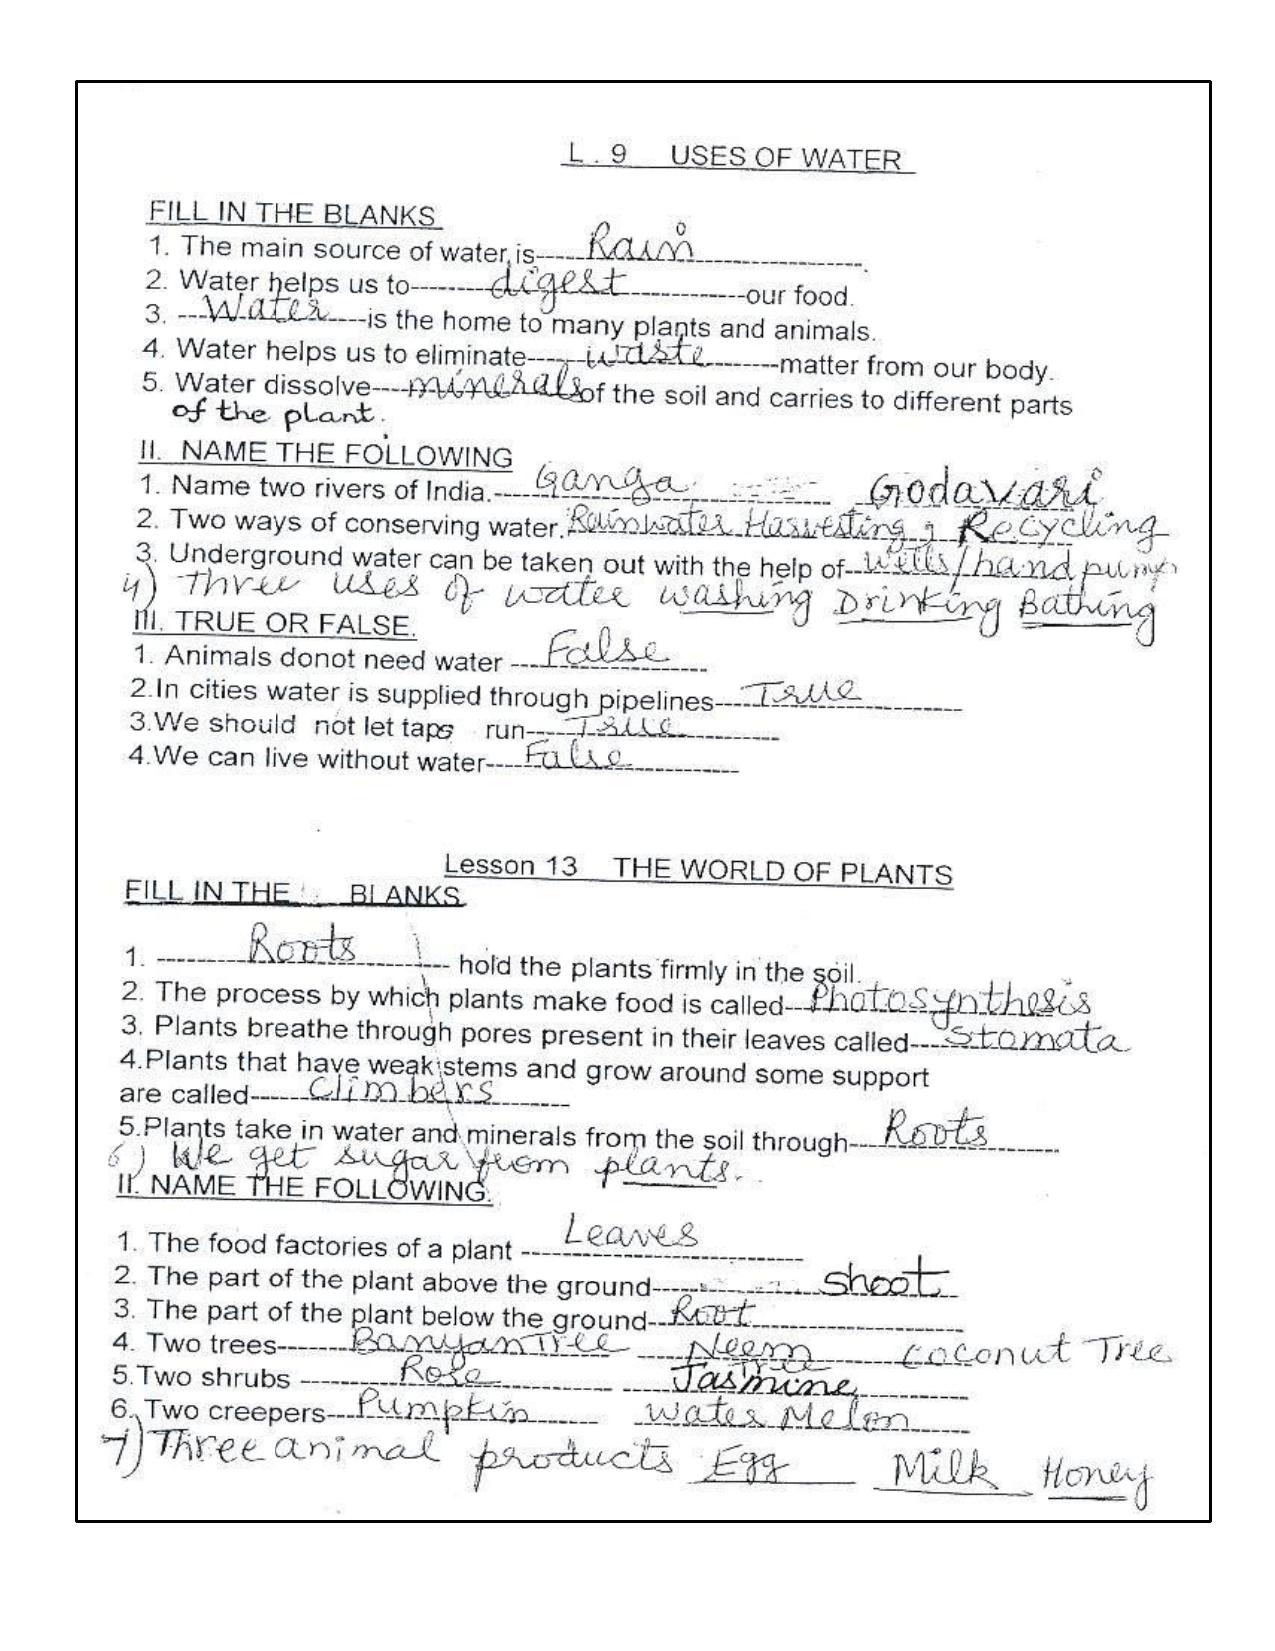 L . 9 USES OF WATER
FILL IN THE BLANKS
1. The main source of water is-----Rain-----------------.
2. Water helps us to---------digest--------------our food.
3. ---Water----is the home to many plants and animals.
4. Water helps us to eliminate------waste--------matter from our body.
5. Water dissolve----mineralsof the soil and carries to different parts
of the plant.
II. NAME THE FOLLOWING
1. Name two rivers of India.-----Ganga Godavari
2. Two ways of conserving water.Rainwater Harvesting, Recycling
3. Underground water can be taken out with the help of--wells/handpumps
4) Three uses of water washing Drinking Bathing
III. TRUE OR FALSE.
1. Animals donot need water ----False------
2.In cities water is supplied through pipelines----True-----------
3.We should not let taps run-----True-----------
4.We can live without water-----False------------
Lesson 13 THE WORLD OF PLANTS
FILL IN THE BLANKS
1. ----------Roots---------- hold the plants firmly in the soil.
2. The process by which plants make food is called--Photosynthesis
3. Plants breathe through pores present in their leaves called----Stomata
4.Plants that have weak stems and grow around some support
are called------Climbers---------
5.Plants take in water and minerals from the soil through----Roots--------
6) We get sugar from plants.
II. NAME THE FOLLOWING.
1. The food factories of a plant ----Leaves------------
2. The part of the plant above the ground------shoot--
3. The part of the plant below the ground--Root---------------
4. Two trees-------Banyan Tree -----Neem Tree------Coconut Tree
5.Two shrubs ----------Rose------------ -----Jasmine----------
6. Two creepers---Pumpkin------ Water Melon-----
7) Three animal products Egg Milk Honey